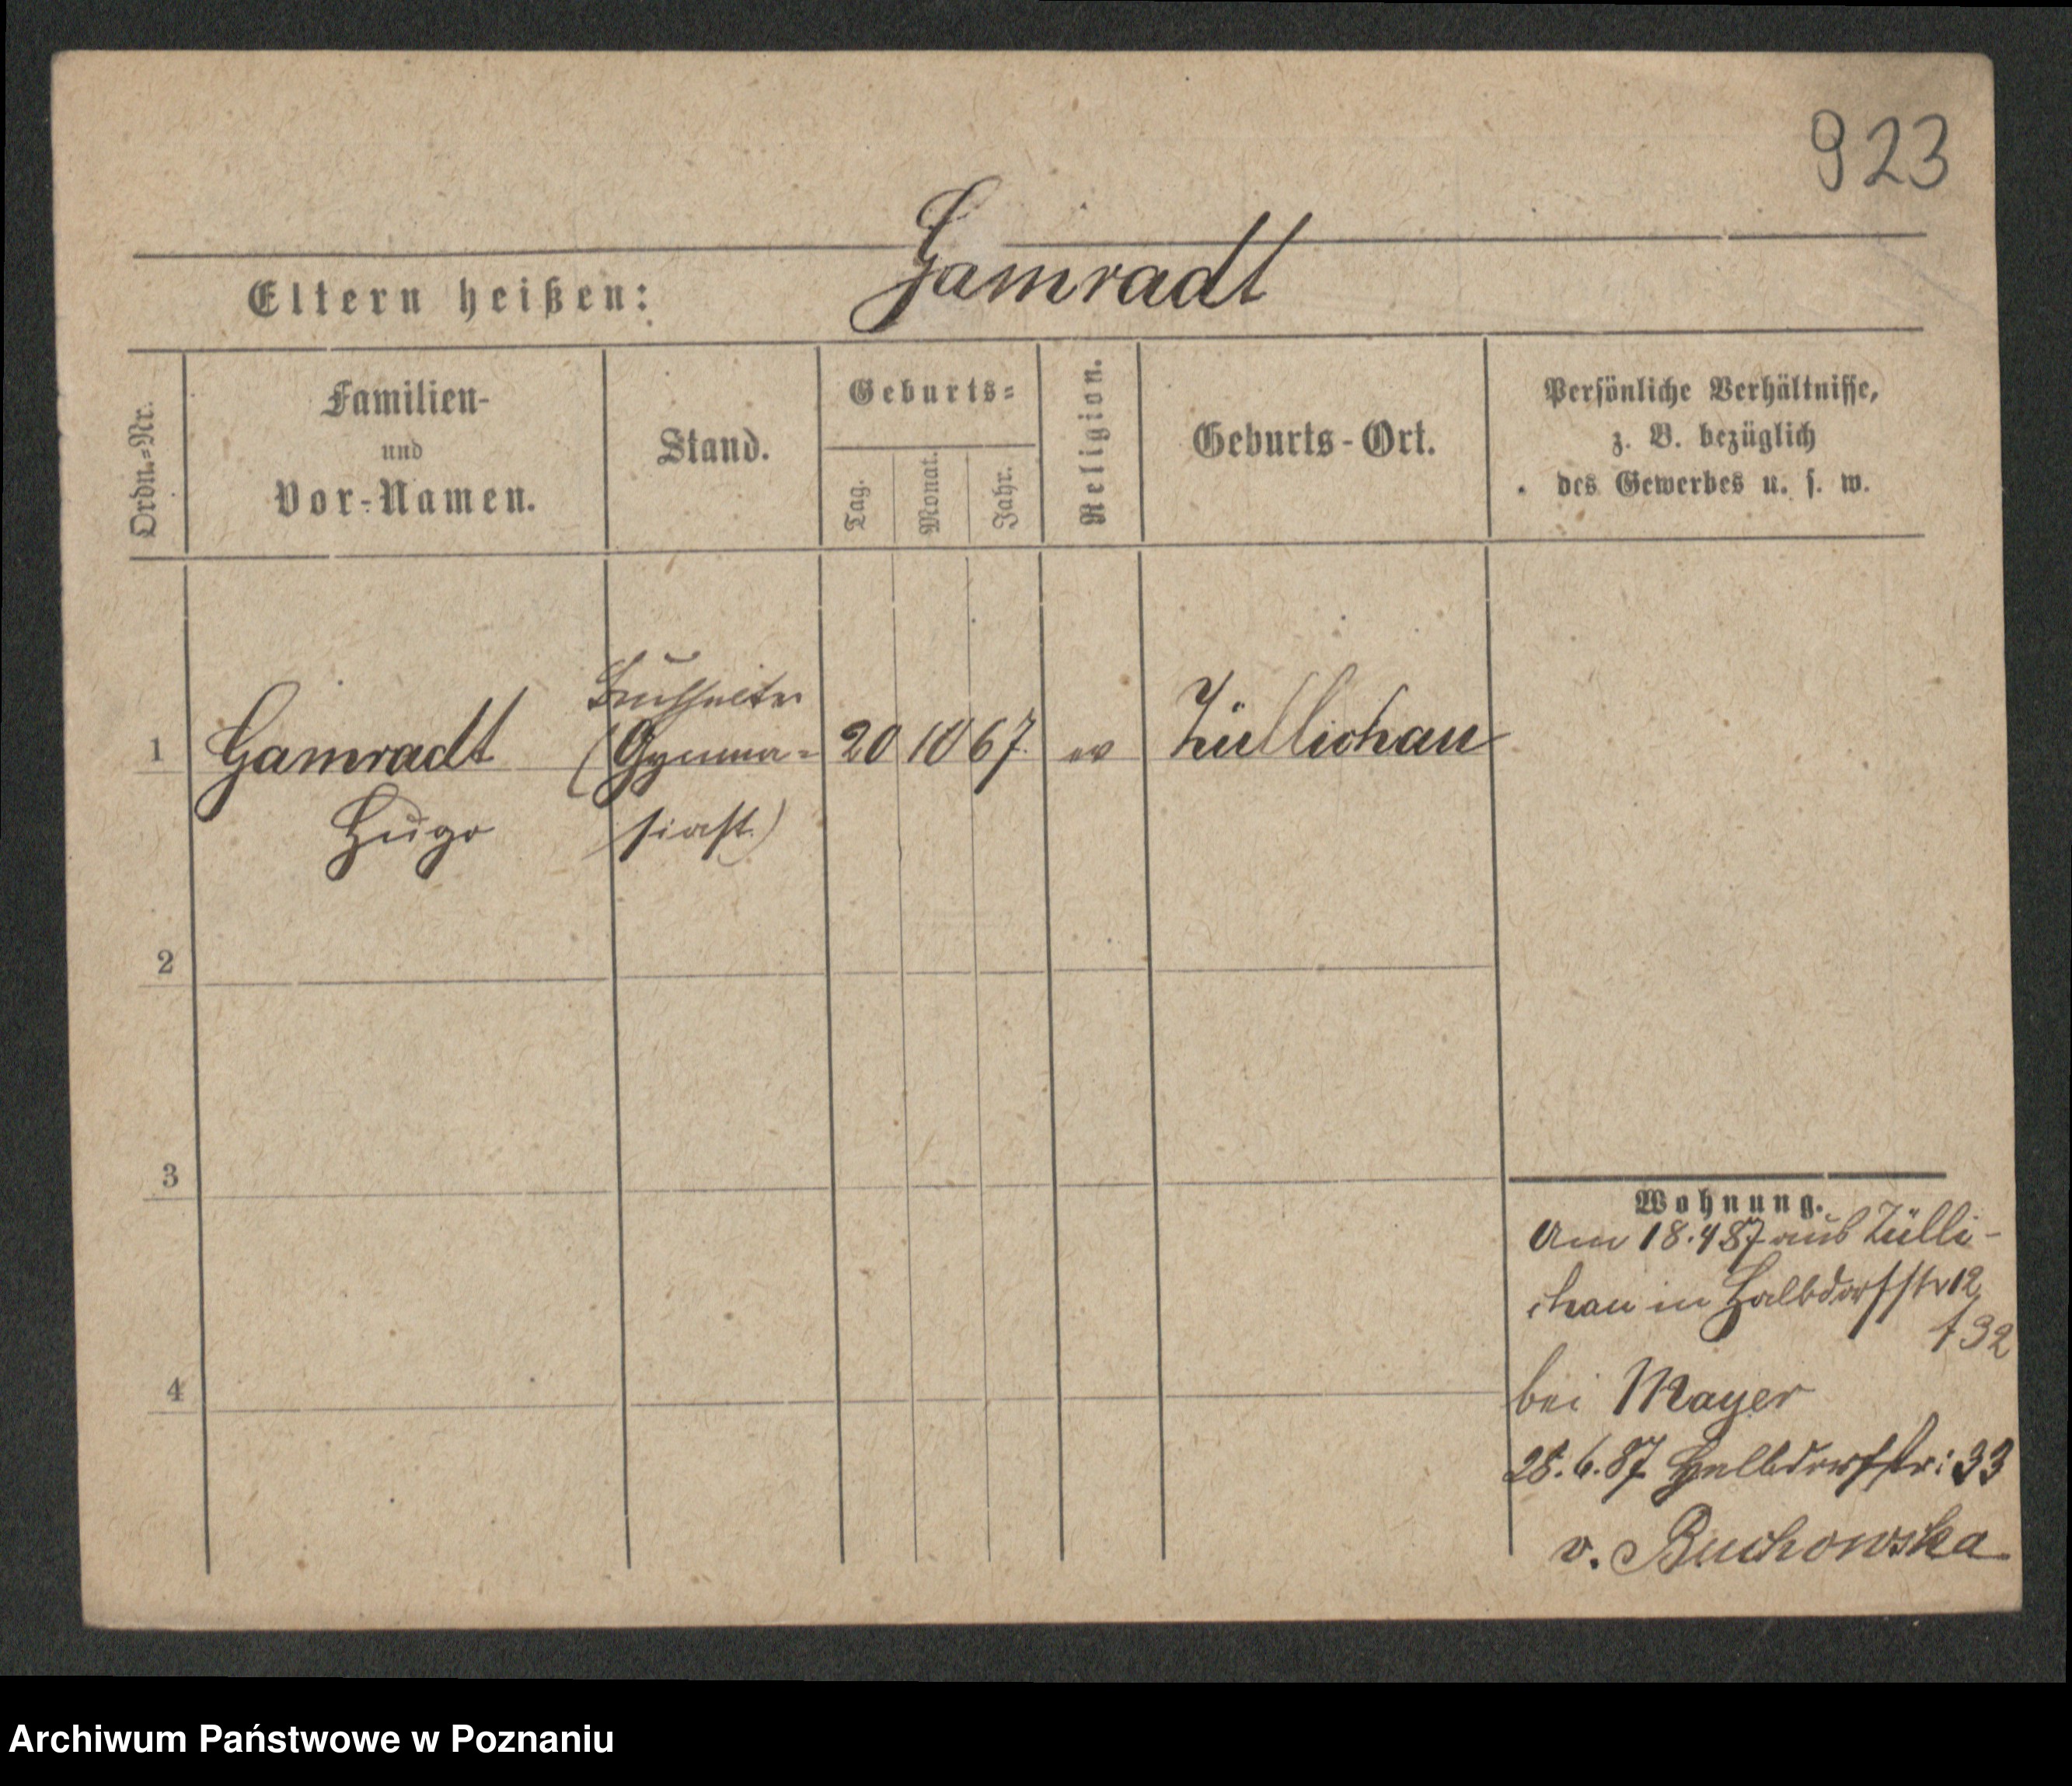 923
Gamradt
Eltern heißen:
Ordn.=Nr.
Familien-
und
Vor-Namen.
Stand.
Geburts=
Tag.
Monat.
Jahr.
Religion.
Geburts-Ort.
Persönliche Verhältnisse,
z. B. bezüglich
des Gewerbes u. s. w.
1 Gamradt (Gymna= 20 10 67. ev Züllichau
Hugo siast.)
2
3
4
Wohnung.
Am 18.4 87 aus Zülli-
chau in Halbdorfstr 12
bei Mayer
28.6.87 Halbdorfstr: 33
v. Buchowska
Archiwum Państwowe w Poznaniu